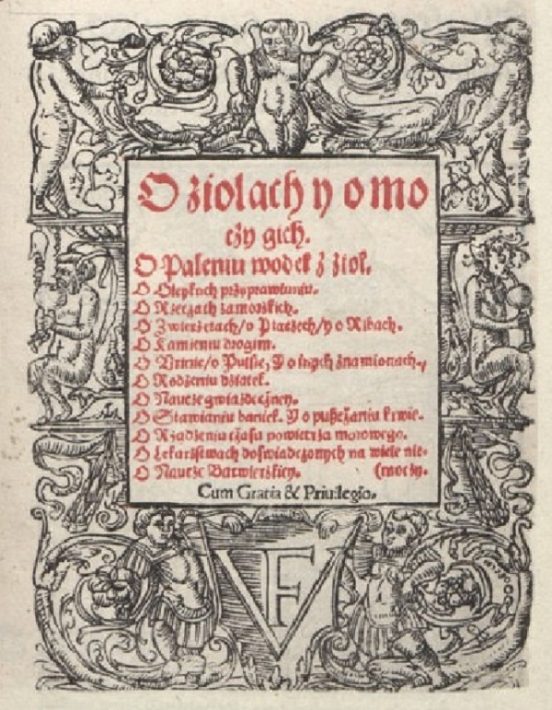 O ziolach y o mo
czy gich.
O Paleniu wodek z ziol.
O Oleykach przyprawianiu.
O Rzeczach zamorskich.
O Zwierzetach/o Ptaczech/y o Ribach.
O Kamieniu drogim.
O Urinie/o Pulsie, Y o inych znamionach.,
O Rodzeniu dziatek.
O Nauce gwiazdeczney.
O Stawianiu baniek. Y o pusczaniu krwie.
O Rzadzeniu czasu powietrza morowego.
O Lekarstwach doswiadczonych na wiele nie-
O Naucze Barwierskiey. (moczy.
Cum Gratia & Priuilegio.
FV